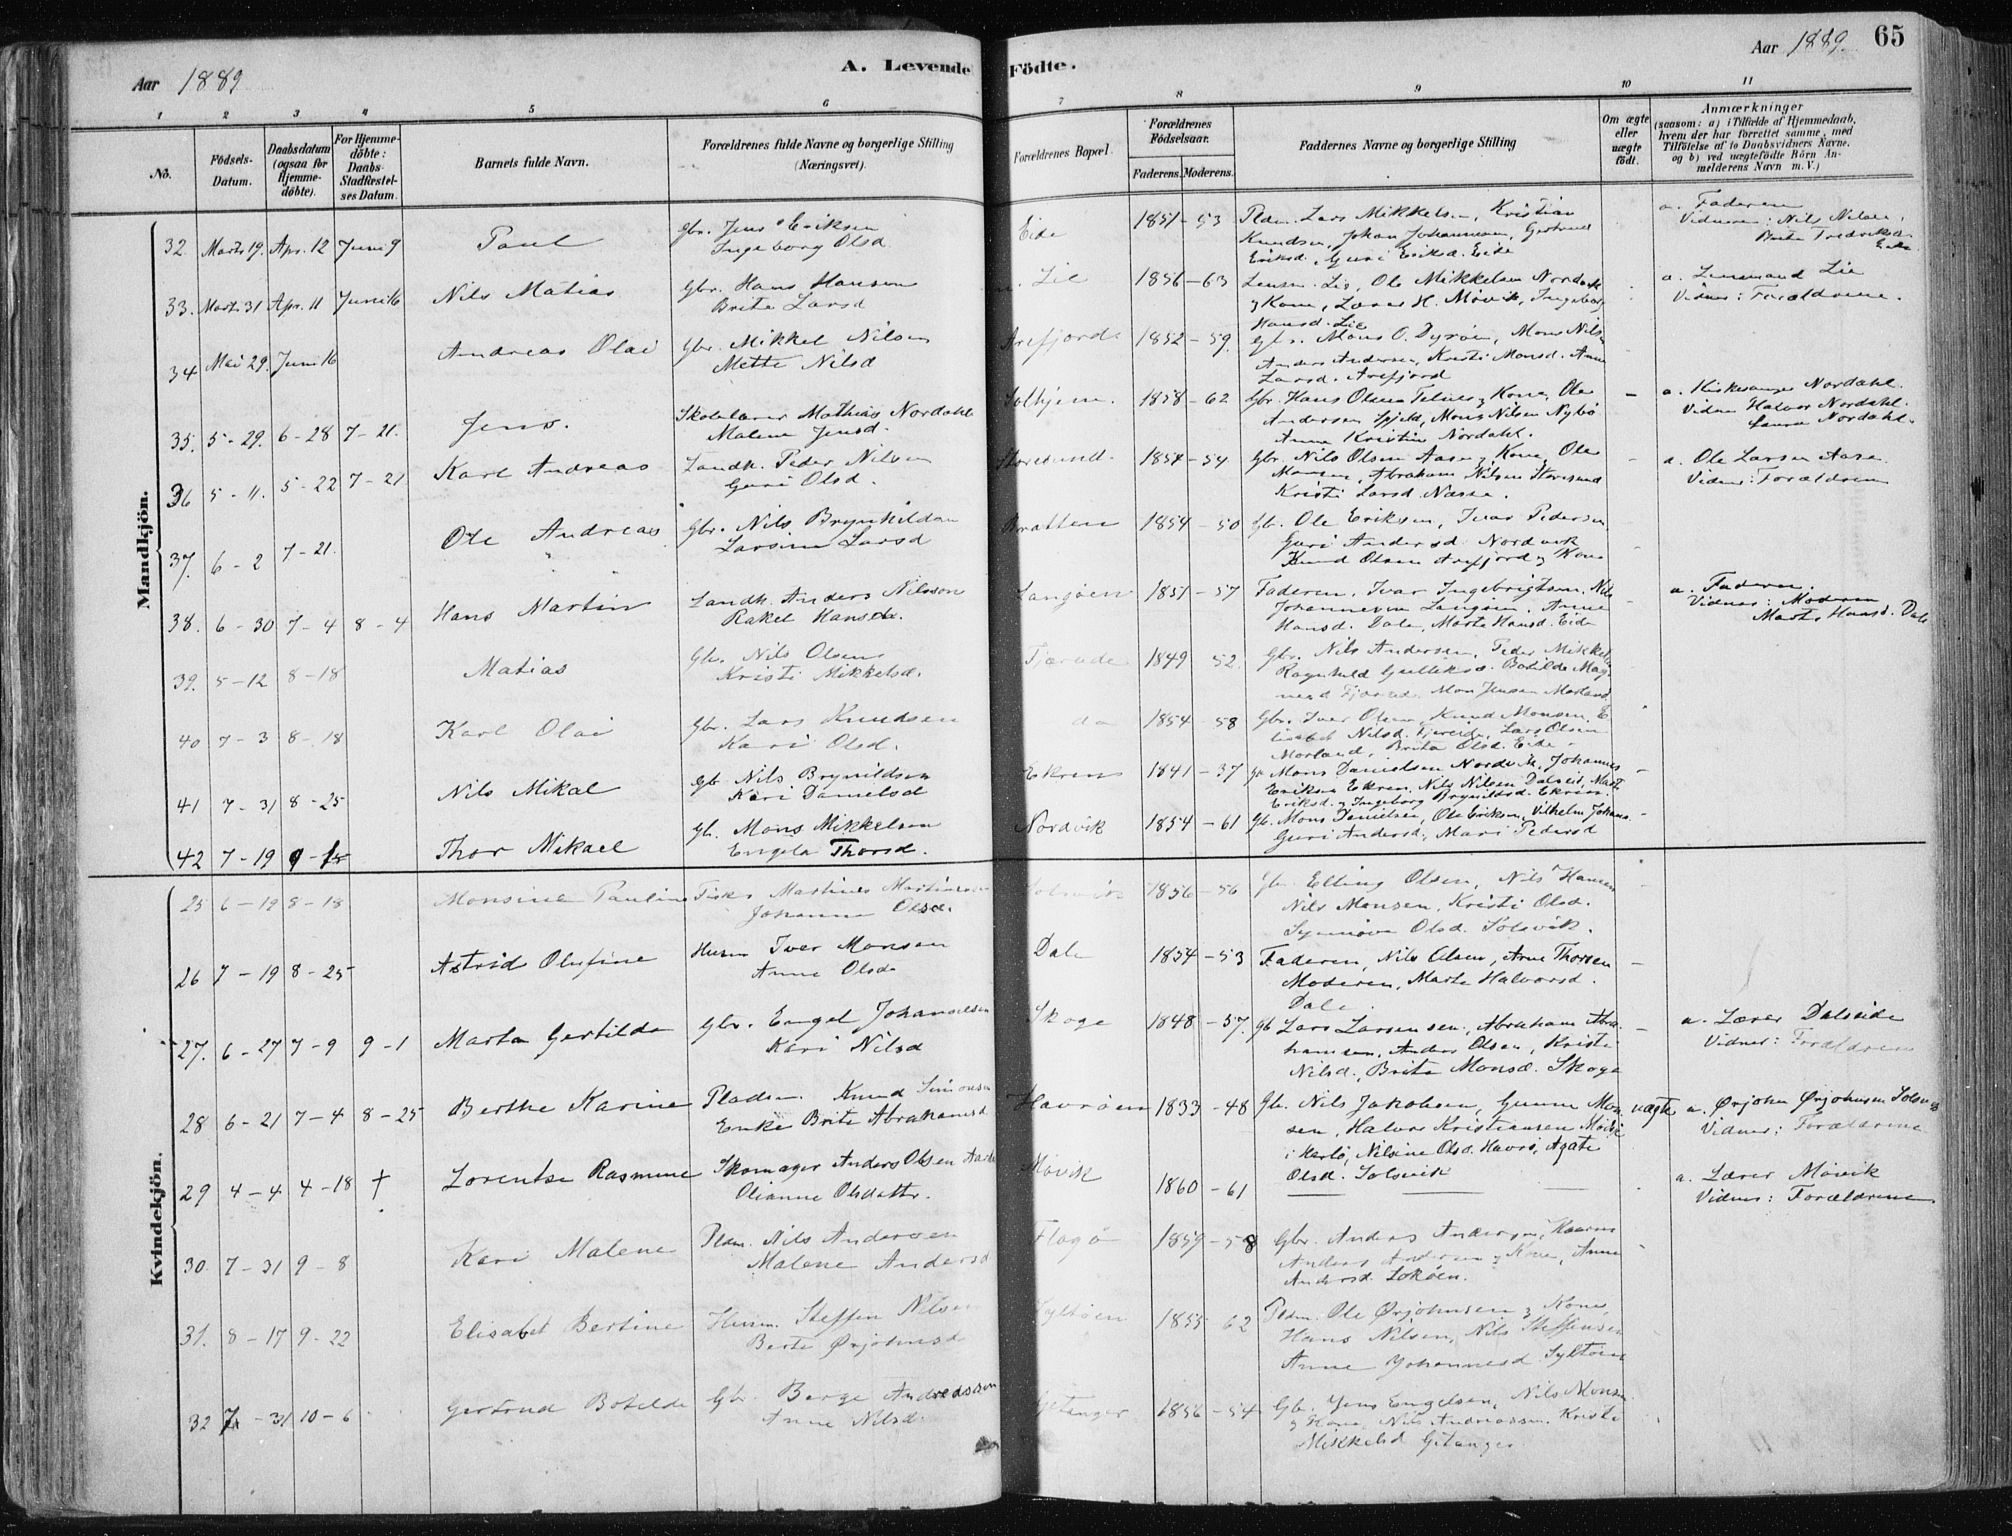 Aar 1889
A. Levende Födte.
Aar 1889
65
1 2 3 4 5 6 7 8 9 10 11
No.
Födsels-Datum.
Daabsdatum (ogsaa for Hjemme-döbte).
For Hjemme-döbte: Daabs-Stadfæstel-ses Datum.
Barnets fulde Navn.
Forældrenes fulde Navne og borgerlige Stilling (Næringsvei).
Forældrenes Bopæl.
Forældrenes Födselsaar.
Faderens. Moderens.
Faddernes Navne og borgerlige Stilling
Om ægte eller uægte födt.
Anmærkninger
(saasom: a) i Tilfælde af Hjemmedaab, hvem der har forrettet samme, med Tilföielse af to Daabsvidners Navne, og b) ved uægtefödte Börn An-melderens Navn m. V.)
Mandkjön.
32 Marts 19. Apr. 12 Juni 9 Paul Gbr. Jens Eriksen Eide 1851-53 Pldm. Lars Mikkelsen, Kristian a. Faderen
Ingeborg Olsd Knudsen, Johan Johannesen, Gertrud Vidner: Nils Nilsen,
Eriksd. Guri Eriksd. Eide Brita Eide
33. Marts 31 Apr. 11 Juni 16 Nils Matias Gbr. Hans Hansen Lie 1856-63 Lensm. Lie, Ole Mikkelsen Nordvik a. Lensmand Lie
Brita Larsd & Kone, Lærer H. Møvik, Ingeborg Vidner: Forældrene.
Hansd. Lie
34 Mai 29. Juni 16 Andreas Olai Gbr. Mikkel Nilsen Arefjord 1852-59. Gbr. Mons O. Dyrøen, Mons Nils-
Mette Nilsd Anders Andersen, Kristi Monsd. Anne
Larsd. Arefjord
35. 5-29. 6-28 7-21. Jens. Skolelærer Mathias Nordahl Solhjem. 1858-62 Gbr. Hans Olsen Telnes & Kone, Ole - a. Kirkesanger Nordahl.
Malene Jensd. Andersen Spjeld, Mons Nilsen Nybø Vidner Halvor Nordahl.
Anna Kristine Nordahl. Laura Nordahl.
36 5-11. 5-22 7-21 Karl Andreas Landh. Peder Nilsen Storesund. 1854-54 Gbr. Nils Olsen Aase & Kone, Ole - a. Ole Larsen Aase.
Guri Olsd. Monsen, Abraham Nilsen Storesund Vidner: Forældrene
Kristi Larsd. Næsse.
37. 6-2 7-21. Ole Andreas Gbr. Nils Brynhildsen Bratten 1854-50 Gb. Ole Eriksen, Ivar Pedersen
Larsine Larsd Guri Andersd. Nordvik
Knud Olsen Arefjord & Kone
38. 6-30 7-4 8-4 Hans Martin Landh. Anders Nilsson Langøen 1851-57 Faderen, Ivar Ingebrigtsen, Nils a. Faderen.
Rakel Hansdr. Johannesen Langøen, Anne Vidner: Moderen
Hansd. Dale, Marta Hansd. Eide Marta Hansd. Dale
39. 5-12 8-18 Matias Gbr. Nils Olsen Fjæreide 1849 52. Gbr. Nils Andersen, Peder Mikkels
Kristi Mikkelsd. Ragnhild Gulliksd. Botilde Mag-
nesd Fjæreide Mons Jensen Morland
40 7-3 8-18 Karl Olai Gbr. Lars Knudsen do 1854-58 Gbr. Iver Olsen, Knud Monsen, E-
Kari Olsd. lisabet Nilsd. Fjereide, Lars Olsen
Morland. Brita Olsd. Eide.
41 7-31 8-25 Nils Mikal Gb. Nils Brynildsen Ekren 1841-37 Gb Mons Danielsen Nordvik, Johannes -
Kari Danielsd Eriksen Ekren, Nils Nilsen Dalseid, Mart
Eriksd. & Ingeborg Brynildsd. Ekren.
42 7-19 Thor Mikael Gb. Mons Mikkelsen Nordvik 1854-61 Gb. Mons Danielsen, Ole Eriksen, Vilhelm Johans -
Engela Thorsd. Guri Andersd. Mari Pedersd
Kvindekjön.
25 6-19 8-18 Monsine Pauline Fisker Martines Martinesen Solsvik 1856-56 Gbr. Elling Olsen, Nils Hansen
Johanna Olsd. Nils Monsen, Kristi Olsd.
Synnøve Olsd. Solsvik.
26 7-19 8-25 Astrid Olufine Husm Iver Monsen Dale 1854-53 Faderen, Nils Olsen, Arne Thorsen -
Anne Olsd Moderen, Marta Halvorsd.
Dale.
27. 6-27 7-9 9-1 Marta Gertilde Gbr. Engel Johannesen Skoge 1848-57. Gb Lars Larsensen, Abraham Abra- - a. Lærer Dalseide
Kari Nilsd hamsen, Anders Olsen, Kristi Vidner: Forældrene
Nilsd., Brita Monsd. Skoge
28 6-21 7-4 8-25 Berthe Karine Pladsm. Knud Simonsen Havrøen 1833-48 Gb. Nils Jakobsen, Gunne Mon- uægte a. Ørjohn Ørjohnsen Solsvik
Enke Brita Abrahamsd sen, Halvor Kristiansen Vidner: Forældrene
i Herlø, Nilsine Olsd. Havrø, Agate
Olsd. Solsvik
29 4-4 4-18 † Lorentse Rasmine Skomager Anders Olsen Møvik 1860-61 a. Lærer Møvik
Olianne Olsdattr. Vidner: Forældrene
30. 7-31 9-8 Kari Malene Pldm. Nils Andersen Flagø 1859-58 Gbr. Anders Andersen
Malene Andersd Anders Andersen & Kone, Anne
Andersd. Lokøen.
31. 8-17 9-22 Elisabet Bertine Husm. Steffen Nilsen Syltøen 1855-62 Pldm. Ole Ørjohnsen & Kone,
Berte Ørjohnsd Hans Nilsen, Nils Steffensen
Anne Johannesd Syltøen
32 7-31 10-6 Gertrud Botilde Gbr. Berge Andreassen Geitanger 1856-54 Gb. Jens Engelsen, Nils Monsen
Anne Nilsd. & Kone, Nils Andreassen. Kristi
Mikkelsd Gitanger